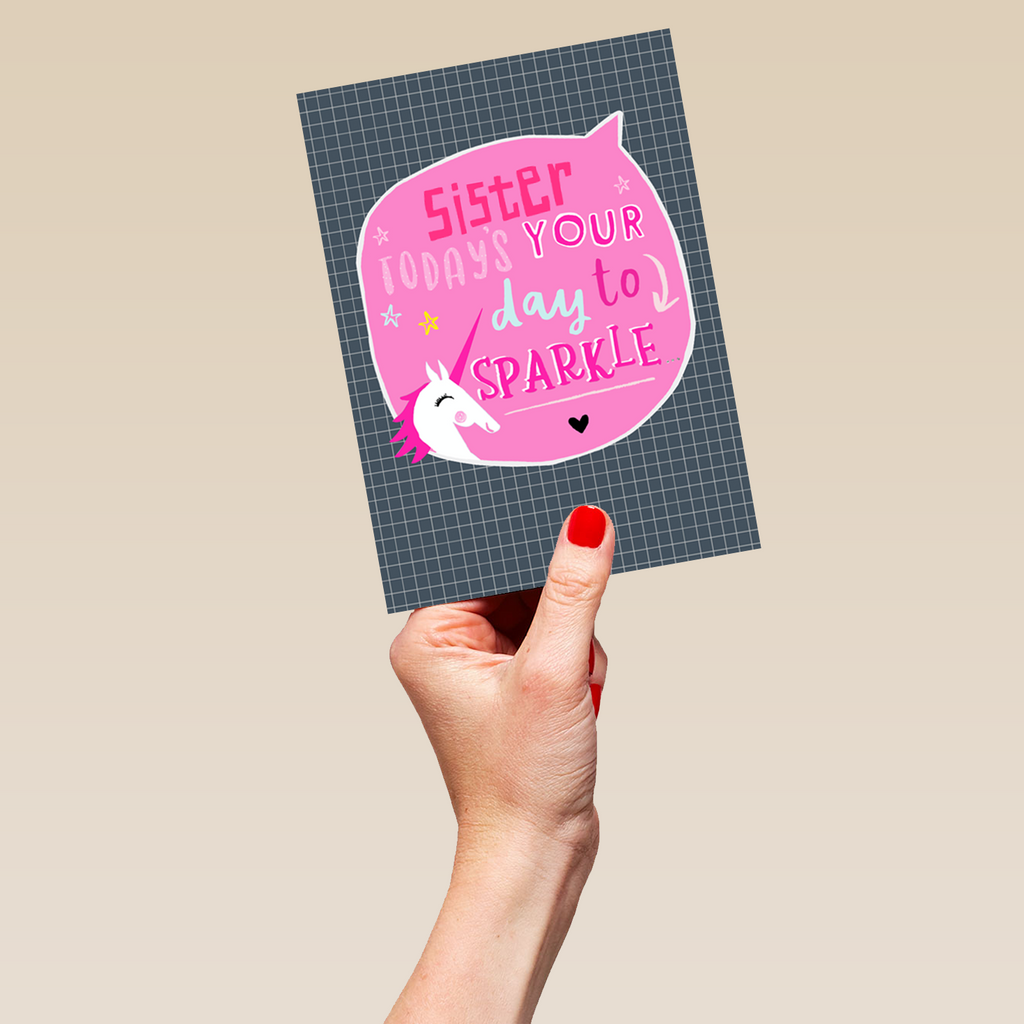 Sister
TODAY'S YOUR
day to
SPARKLE